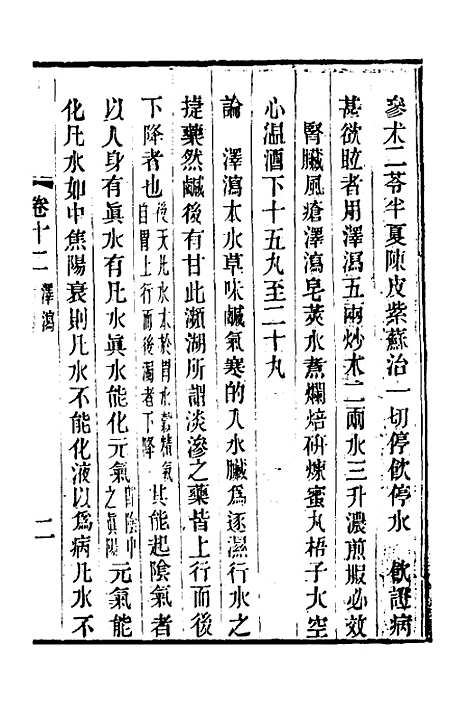 參术二苓半夏陳皮紫蘇治一切停飲停水　飲證病
甚欲眩者用澤瀉五兩炒术二兩水三升濃煎服必效
腎臟風瘡澤瀉皂莢水煮爛焙硏煉蜜丸梧子大空
心温酒下十五丸至二十丸
論　澤瀉本水草味鹹氣寒的入水臟爲逐濕行水之
捷藥然鹹後有甘此瀕湖所謂淡滲之藥皆上行而後
下降者也後天凡水本於胃水穀精氣自胃上行而後濁者下降其能起陰氣者
以人身有眞水有凡水眞水能化元氣卽陰中之眞陽元氣能
化凡水如中焦陽衰則凡水不能化液以爲病凡水不
卷十二　澤瀉　二